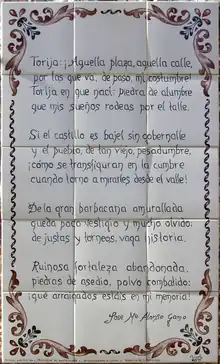 Torija: ¡Aquella plaza, aquella calle,
por las que va, de paso, mi costumbre!
Torija en que nací: piedra de alumbre
que mis sueños rodeas por el talle.
Si el castillo es bajel sin gobernalle
y el pueblo, de tan viejo, pesadumbre,
¡cómo se transfiguran en la cumbre
cuando torno a mirarles desde el valle!
De la gran barbacana amurallada
queda poco vestigio y mucho olvido:
de justas y torneos, vaga historia.
Ruinosa fortaleza abandonada,
piedras de asedio, polvo combatido:
¡qué arraigados estáis en mi memoria!
José Mª Alonso Gamo